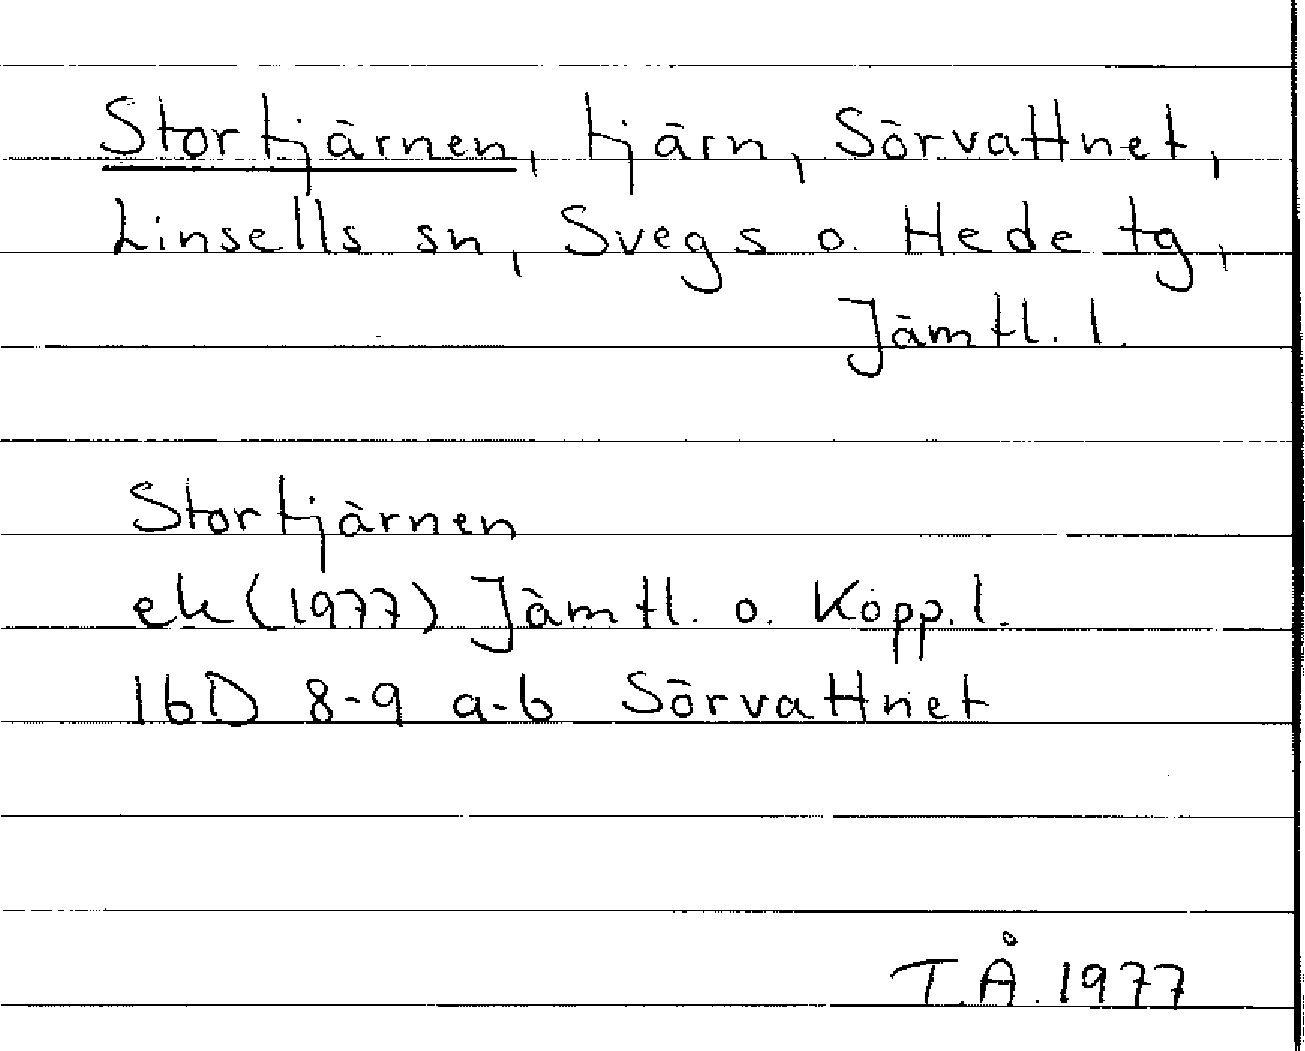 Stortjärnen, tjärn, Sörvattnet,
Linsells sn, Svegs o. Hede tg,
Jämtl. l.
Stortjärnen
ek (1977) Jämtl. o. Kopp. l.
16D 8-9 a-b Sörvattnet
T.Å. 1977